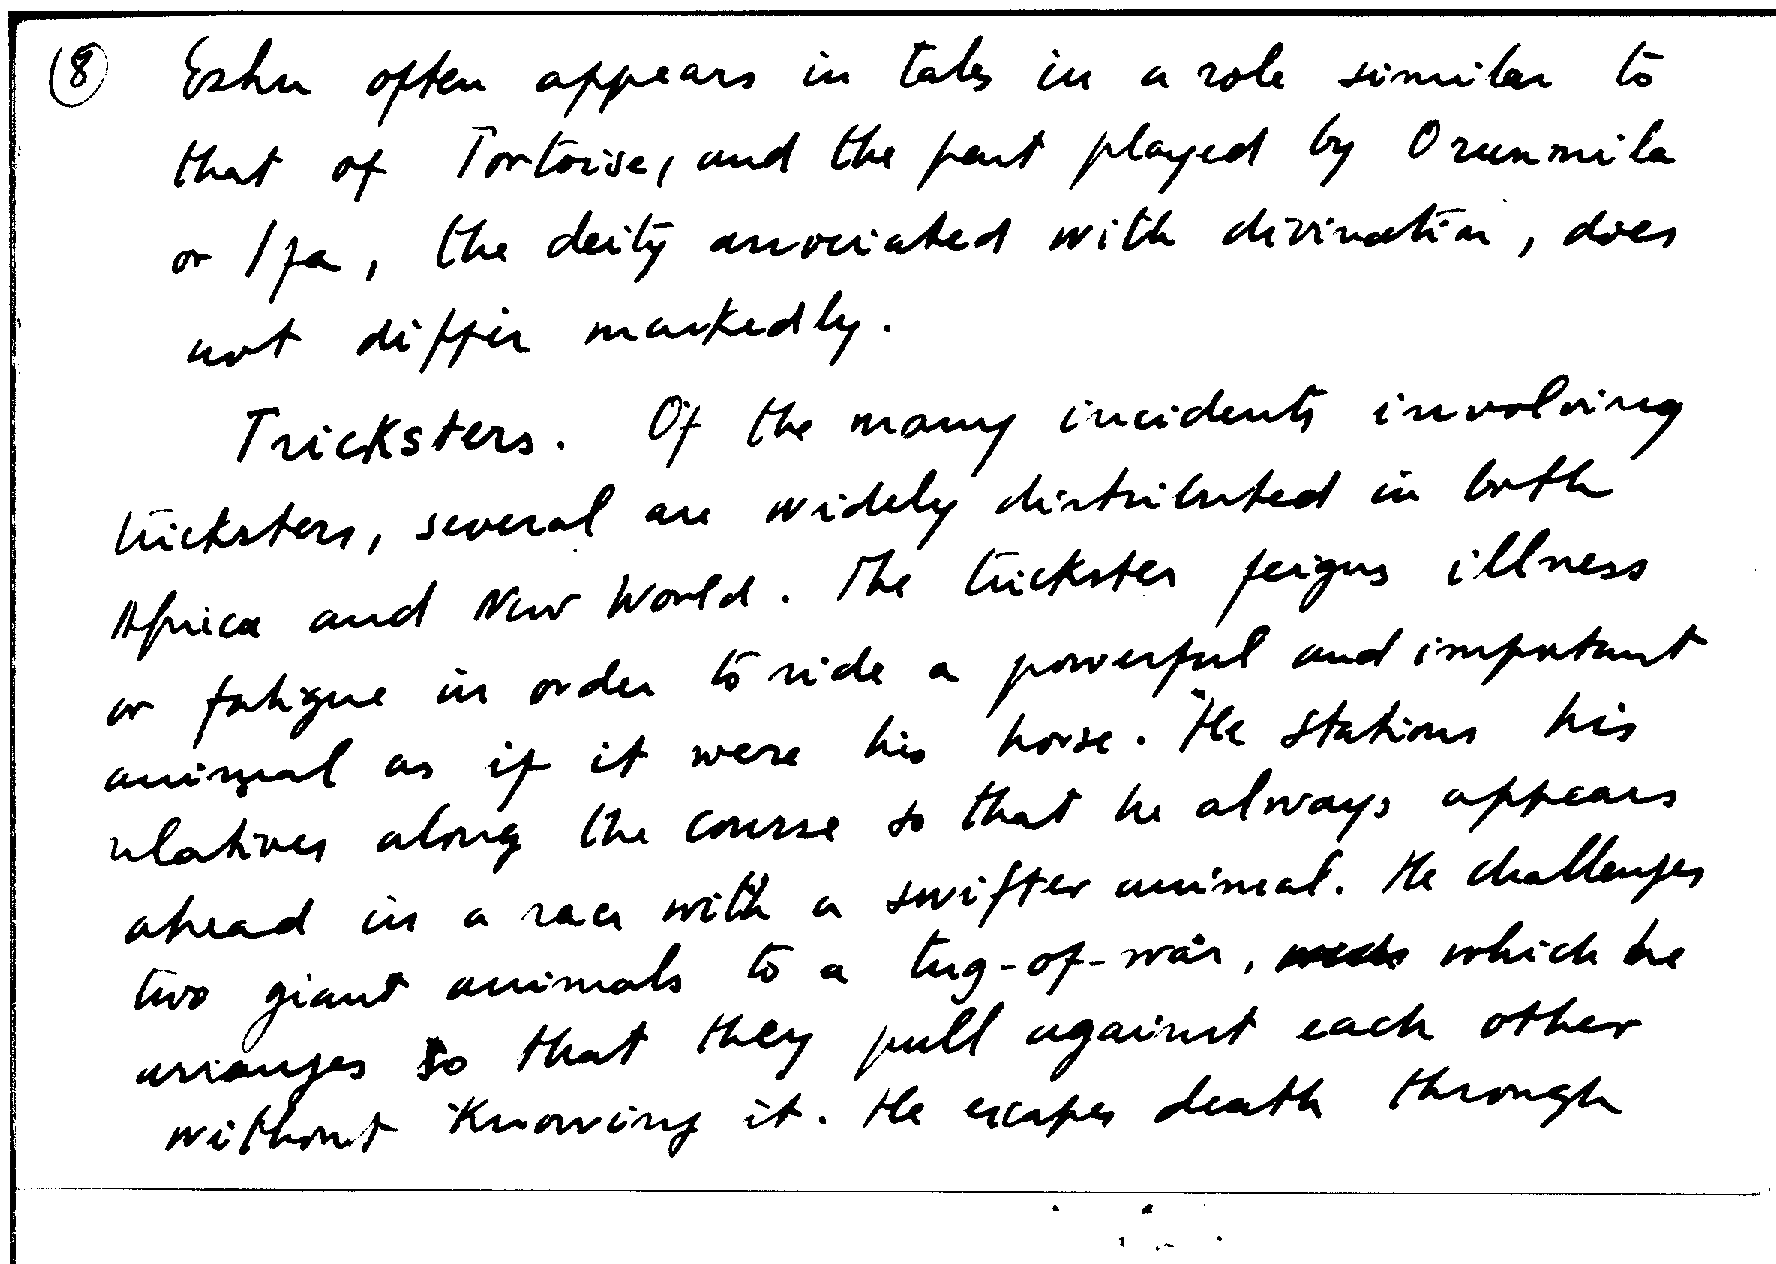 (8) Eshu often appears in tales in a role similar to
that of Tortoise, and the part played by Orunmila
or Ifa, the deity associated with divination, does
not differ markedly.
Tricksters. Of the many incidents involving
tricksters, several are widely distributed in both
Africa and New World. The trickster feigns illness
or fatigue in order to ride a powerful and important
animal as if it were his horse. He stations his
relatives along the course so that he always appears
ahead in a race with a swifter animal. He challenges
two giant animals to a tug-of-war, which he
arranges so that they pull against each other
without knowing it. He escapes death through